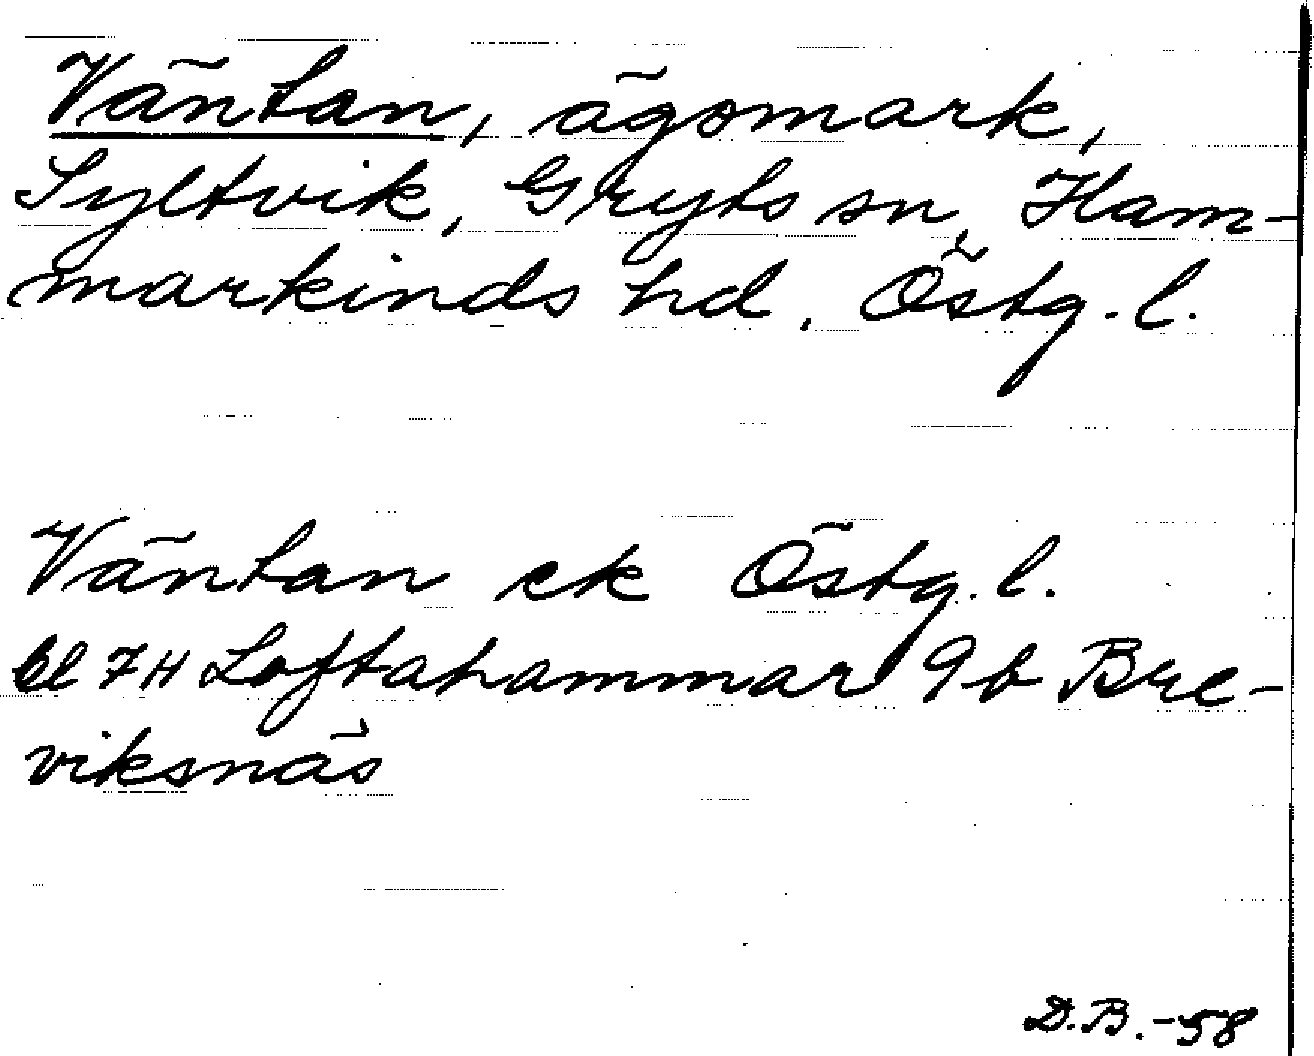 Väntan, ägomark,
Syltvik, Gryts sn, Ham-
markinds hd. Östg. l.
Väntan ek Östg. l.
bl 7H Loftahammar 9b Bre-
viksnäs
D.B.-58